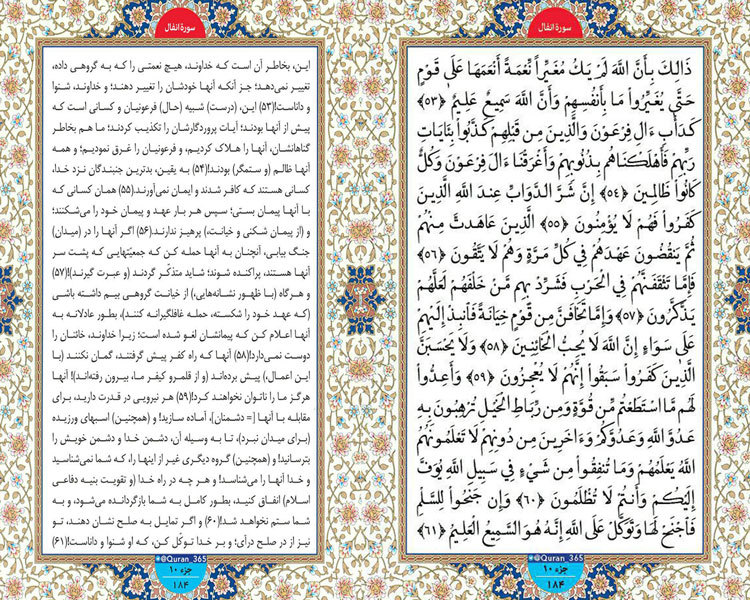 سورة انفال
ذَٰلِكَ بِأَنَّ اللَّهَ لَمْ يَكُ مُغَيِّرًا نِّعْمَةً أَنْعَمَهَا عَلَىٰ قَوْمٍ
حَتَّىٰ يُغَيِّرُوا۟ مَا بِأَنفُسِهِمْ وَأَنَّ اللَّهَ سَمِيعٌ عَلِيمٌ ﴿۵۳﴾
كَدَأْبِ ءَالِ فِرْعَوْنَ وَالَّذِينَ مِن قَبْلِهِمْ كَذَّبُوا۟ بِـَٔايَاتِ
رَبِّهِمْ فَأَهْلَكْنَاهُم بِذُنُوبِهِمْ وَأَغْرَقْنَا ءَالَ فِرْعَوْنَ وَكُلٌّ
كَانُوا۟ ظَالِمِينَ ﴿۵۴﴾ إِنَّ شَرَّ الدَّوَابِّ عِندَ اللَّهِ الَّذِينَ
كَفَرُوا۟ فَهُمْ لَا يُؤْمِنُونَ ﴿۵۵﴾ الَّذِينَ عَاهَدتَّ مِنْهُمْ
ثُمَّ يَنقُضُونَ عَهْدَهُمْ فِي كُلِّ مَرَّةٍ وَهُمْ لَا يَتَّقُونَ ﴿۵۶﴾
فَإِمَّا تَثْقَفَنَّهُمْ فِي الْحَرْبِ فَشَرِّدْ بِهِم مَّنْ خَلْفَهُمْ لَعَلَّهُمْ
يَذَّكَّرُونَ ﴿۵۷﴾ وَإِمَّا تَخَافَنَّ مِن قَوْمٍ خِيَانَةً فَانبِذْ إِلَيْهِمْ
عَلَىٰ سَوَاءٍ إِنَّ اللَّهَ لَا يُحِبُّ الْخَائِنِينَ ﴿۵۸﴾ وَلَا يَحْسَبَنَّ
الَّذِينَ كَفَرُوا۟ سَبَقُوا۟ إِنَّهُمْ لَا يُعْجِزُونَ ﴿۵۹﴾ وَأَعِدُّوا۟
لَهُم مَّا اسْتَطَعْتُم مِّن قُوَّةٍ وَمِن رِّبَاطِ الْخَيْلِ تُرْهِبُونَ بِهِ
عَدُوَّ اللَّهِ وَعَدُوَّكُمْ وَءَاخَرِينَ مِن دُونِهِمْ لَا تَعْلَمُونَهُمُ
اللَّهُ يَعْلَمُهُمْ وَمَا تُنفِقُوا۟ مِن شَيْءٍ فِي سَبِيلِ اللَّهِ يُوَفَّ
إِلَيْكُمْ وَأَنتُمْ لَا تُظْلَمُونَ ﴿۶۰﴾ وَإِن جَنَحُوا۟ لِلسَّلْمِ
فَاجْنَحْ لَهَا وَتَوَكَّلْ عَلَى اللَّهِ إِنَّهُ هُوَ السَّمِيعُ الْعَلِيمُ ﴿۶۱﴾
@Quran_365
جزء ۱۰
۱۸۴
سورة انفال
این، بخاطر آن است که خداوند، هیچ نعمتی را که به گروهی داده،
تغییر نمی‌دهد؛ جز آنکه آنها خودشان را تغییر دهند؛ و خداوند، شنوا
و داناست!(۵۳) این، (درست) شبیه (حال) فرعونیان و کسانی است که
پیش از آنها بودند؛ آیات پروردگارشان را تکذیب کردند؛ ما هم بخاطر
گناهانشان، آنها را هلاک کردیم، و فرعونیان را غرق نمودیم؛ و همه
آنها ظالم (و ستمگر) بودند!(۵۴) به یقین، بدترین جنبندگان نزد خدا،
کسانی هستند که کافر شدند و ایمان نمی‌آورند.(۵۵) همان کسانی که
با آنها پیمان بستی؛ سپس هر بار عهد و پیمان خود را می‌شکنند؛
و (از پیمان شکنی و خیانت،) پرهیز ندارند.(۵۶) اگر آنها را در (میدان)
جنگ بیابی، آنچنان به آنها حمله کن که جمعیّتهایی که پشت سر
آنها هستند، پراکنده شوند؛ شاید متذکّر گردند (و عبرت گیرند)!(۵۷)
و هرگاه (با ظهور نشانه‌هایی،) از خیانت گروهی بیم داشته باشی
(که عهد خود را شکسته، حمله غافلگیرانه کنند)، بطور عادلانه به
آنها اعلام کن که پیمانشان لغو شده است؛ زیرا خداوند، خائنان را
دوست نمی‌دارد!(۵۸) آنها که راه کفر پیش گرفتند، گمان نکنند (با
این اعمال،) پیش برده‌اند (و از قلمرو کیفر ما، بیرون رفته‌اند)! آنها
هرگز ما را ناتوان نخواهند کرد!(۵۹) هر نیرویی در قدرت دارید، برای
مقابله با آنها [= دشمنان]، آماده سازید! و (همچنین) اسبهای ورزیده
(برای میدان نبرد)، تا به وسیله آن، دشمن خدا و دشمن خویش را
بترسانید! و (همچنین) گروه دیگری غیر از اینها را، که شما نمی‌شناسید
و خدا آنها را می‌شناسد! و هر چه در راه خدا (و تقویت بنیه دفاعی
اسلام) انفاق کنید، بطور کامل به شما بازگردانده می‌شود، و به
شما ستم نخواهد شد!(۶۰) و اگر تمایل به صلح نشان دهند، تو
نیز از در صلح درآی؛ و بر خدا توکّل کن، که او شنوا و داناست!(۶۱)
@Quran_365
جزء ۱۰
۱۸۴